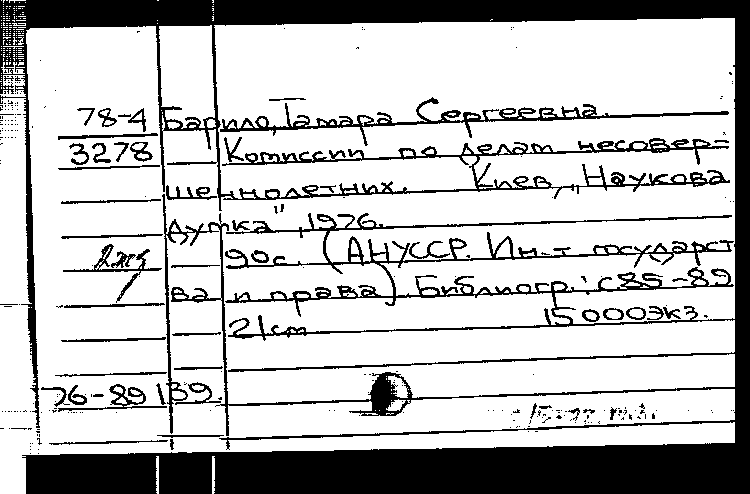 78-4 Барило, Тамара Сергеевна.
3278 Комиссии по делам несовер-
шеннолетних. Киев, „Наукова
думка", 1976.
2жз 90с. (АНУССР. Ин-т государст
ва и права) Библиогр.: с85-89
21cm 15000экз.
76-89139.